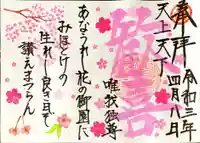 奉拝
令和三年
四月八日
天上天下
唯我独尊
歓喜
あなうれし花の御園に
みほとけの
生れし良き日を
讃えまつらん